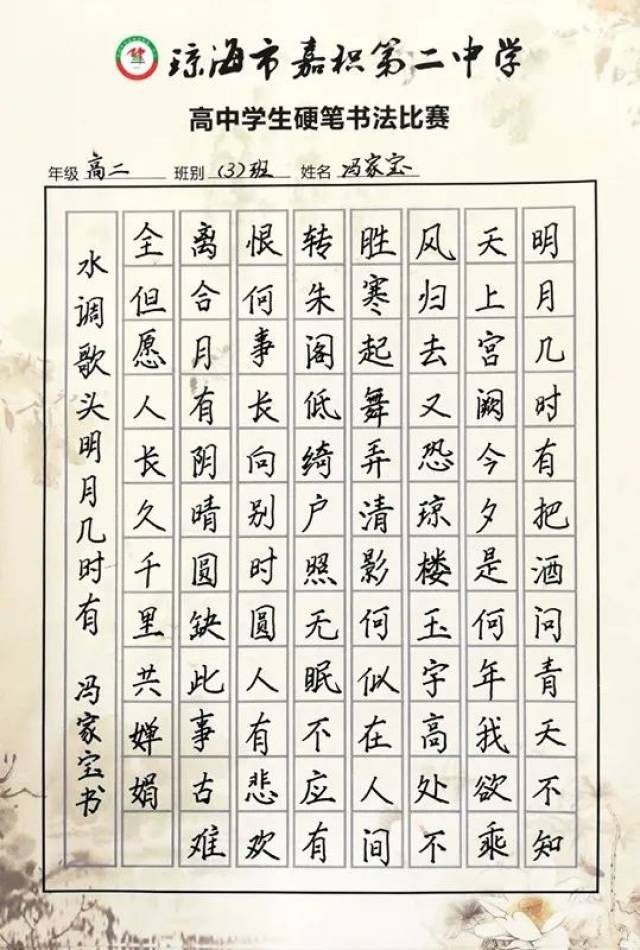 琼海市嘉积第二中学
高中学生硬笔书法比赛
年级 高二 班别 (3)班 姓名 冯家宝
明月几时有把酒问青天不知
天上宫阙今夕是何年我欲乘
风归去又恐琼楼玉宇高处不
胜寒起舞弄清影何似在人间
转朱阁低绮户照无眠不应有
恨何事长向别时圆人有悲欢
离合月有阴晴圆缺此事古难
全但愿人长久千里共婵娟
水调歌头明月几时有 冯家宝书